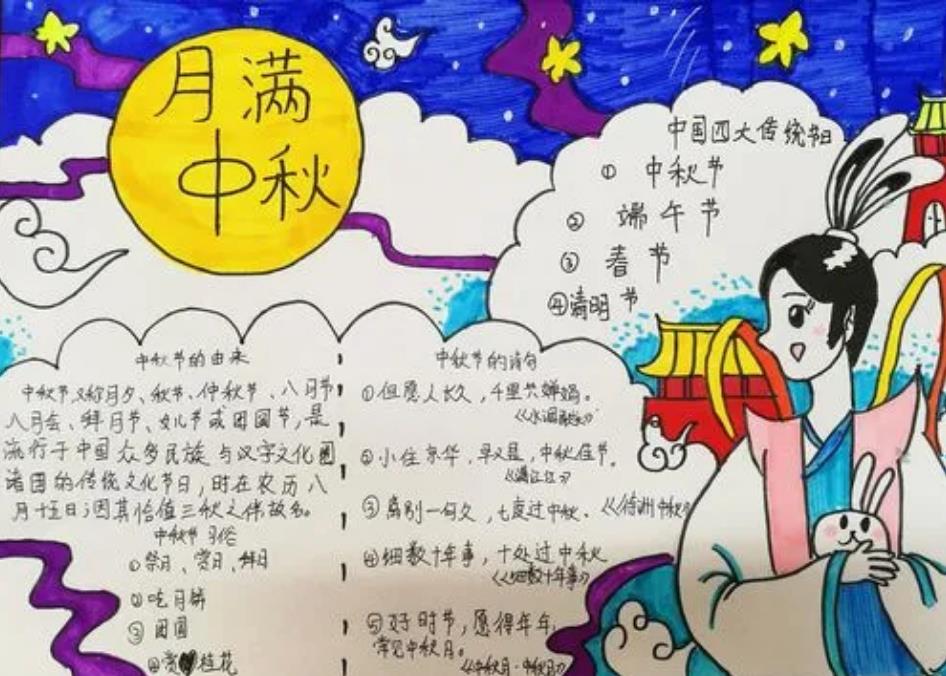 月满
中秋
中国四大传统节日
① 中秋节
② 端午节
③ 春节
④清明节
中秋节的由来
中秋节又称月夕、秋节、仲秋节、八月节
八月会、拜月节、女儿节或团圆节，是
流行于中国众多民族与汉字文化圈
诸国的传统文化节日，时在农历八
月十五日；因其恰值三秋之伴故名。
中秋节习俗
①祭月、赏月、拜月
②吃月饼
③团圆
④赏桂花
中秋节的诗句
①但愿人长久，千里共婵娟。
《水调歌头》
②小住京华，早又是，中秋佳节。
《满江红》
③离别一何久，七度过中秋。《徐州中秋》
④细数十年事，十处过中秋
《细数十年事》
⑤好时节，愿得年年，
常见中秋月。
《中秋月·中秋月》